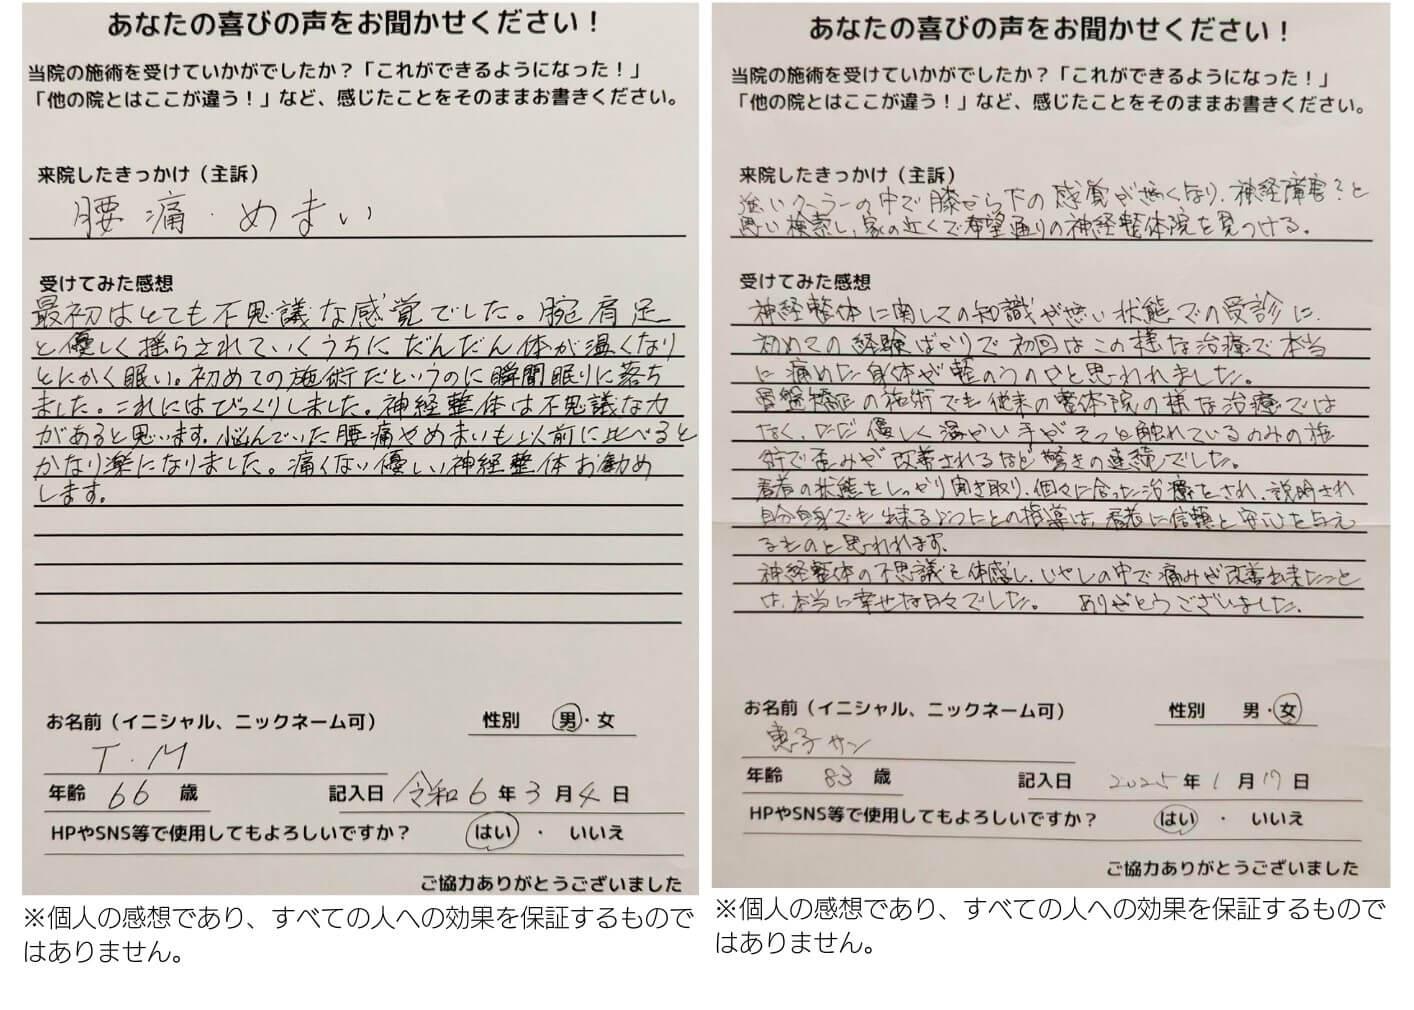 あなたの喜びの声をお聞かせください！
当院の施術を受けていかがでしたか？「これができるようになった！」
「他の院とはここが違う！」など、感じたことをそのままお書きください。
来院したきっかけ（主訴）
腰痛・めまい
受けてみた感想
最初はとても不思議な感覚でした。腕肩足
と優しく揺らされていくうちにだんだん体が温くなり
とにかく眠い。初めての施術だというのに瞬間眠りに落ち
ました。これにはびっくりしました。神経整体は不思議な力
があると思います。悩んでいた腰痛やめまいも以前に比べると
かなり楽になりました。痛くない優しい神経整体お勧め
します。
お名前（イニシャル、ニックネーム可）
性別 男・女
T.M
年齢 66 歳
記入日 令和6年3月4日
HPやSNS等で使用してもよろしいですか？ はい ・ いいえ
ご協力ありがとうございました
※個人の感想であり、すべての人への効果を保証するもので
はありません。
あなたの喜びの声をお聞かせください！
当院の施術を受けていかがでしたか？「これができるようになった！」
「他の院とはここが違う！」など、感じたことをそのままお書きください。
来院したきっかけ（主訴）
クーラーの中で膝から下の感覚が無くなり、神経障害？と
思い検索し、家の近くで希望通りの神経整体院を見つける。
受けてみた感想
神経整体に関しての知識が無い状態での受診に、
初めての経験ばかりで初回はこの様な治療で本当
に痛めた身体が整のうのかと思われました。
骨盤矯正の施術でも他来の整体院の様な治療では
なく、ただ優しく温かい手がそっと触れているのみの施
術で歪みが改善されるなど驚きの連続でした。
患者の状態をしっかり聞き取り、個々に合った治療をされ、説明され
自分自身でも出来るようにとの指導は、患者に信頼と安心を与え
るものと思われます。
神経整体の不思議を体感し、いやしの中で痛みが改善出来たこと
は、本当に幸せな日々でした。 ありがとうございました。
お名前（イニシャル、ニックネーム可）
性別 男・女
恵子サン
年齢 83 歳
記入日 2025年1月17日
HPやSNS等で使用してもよろしいですか？ はい ・ いいえ
ご協力ありがとうございました
※個人の感想であり、すべての人への効果を保証するもので
はありません。